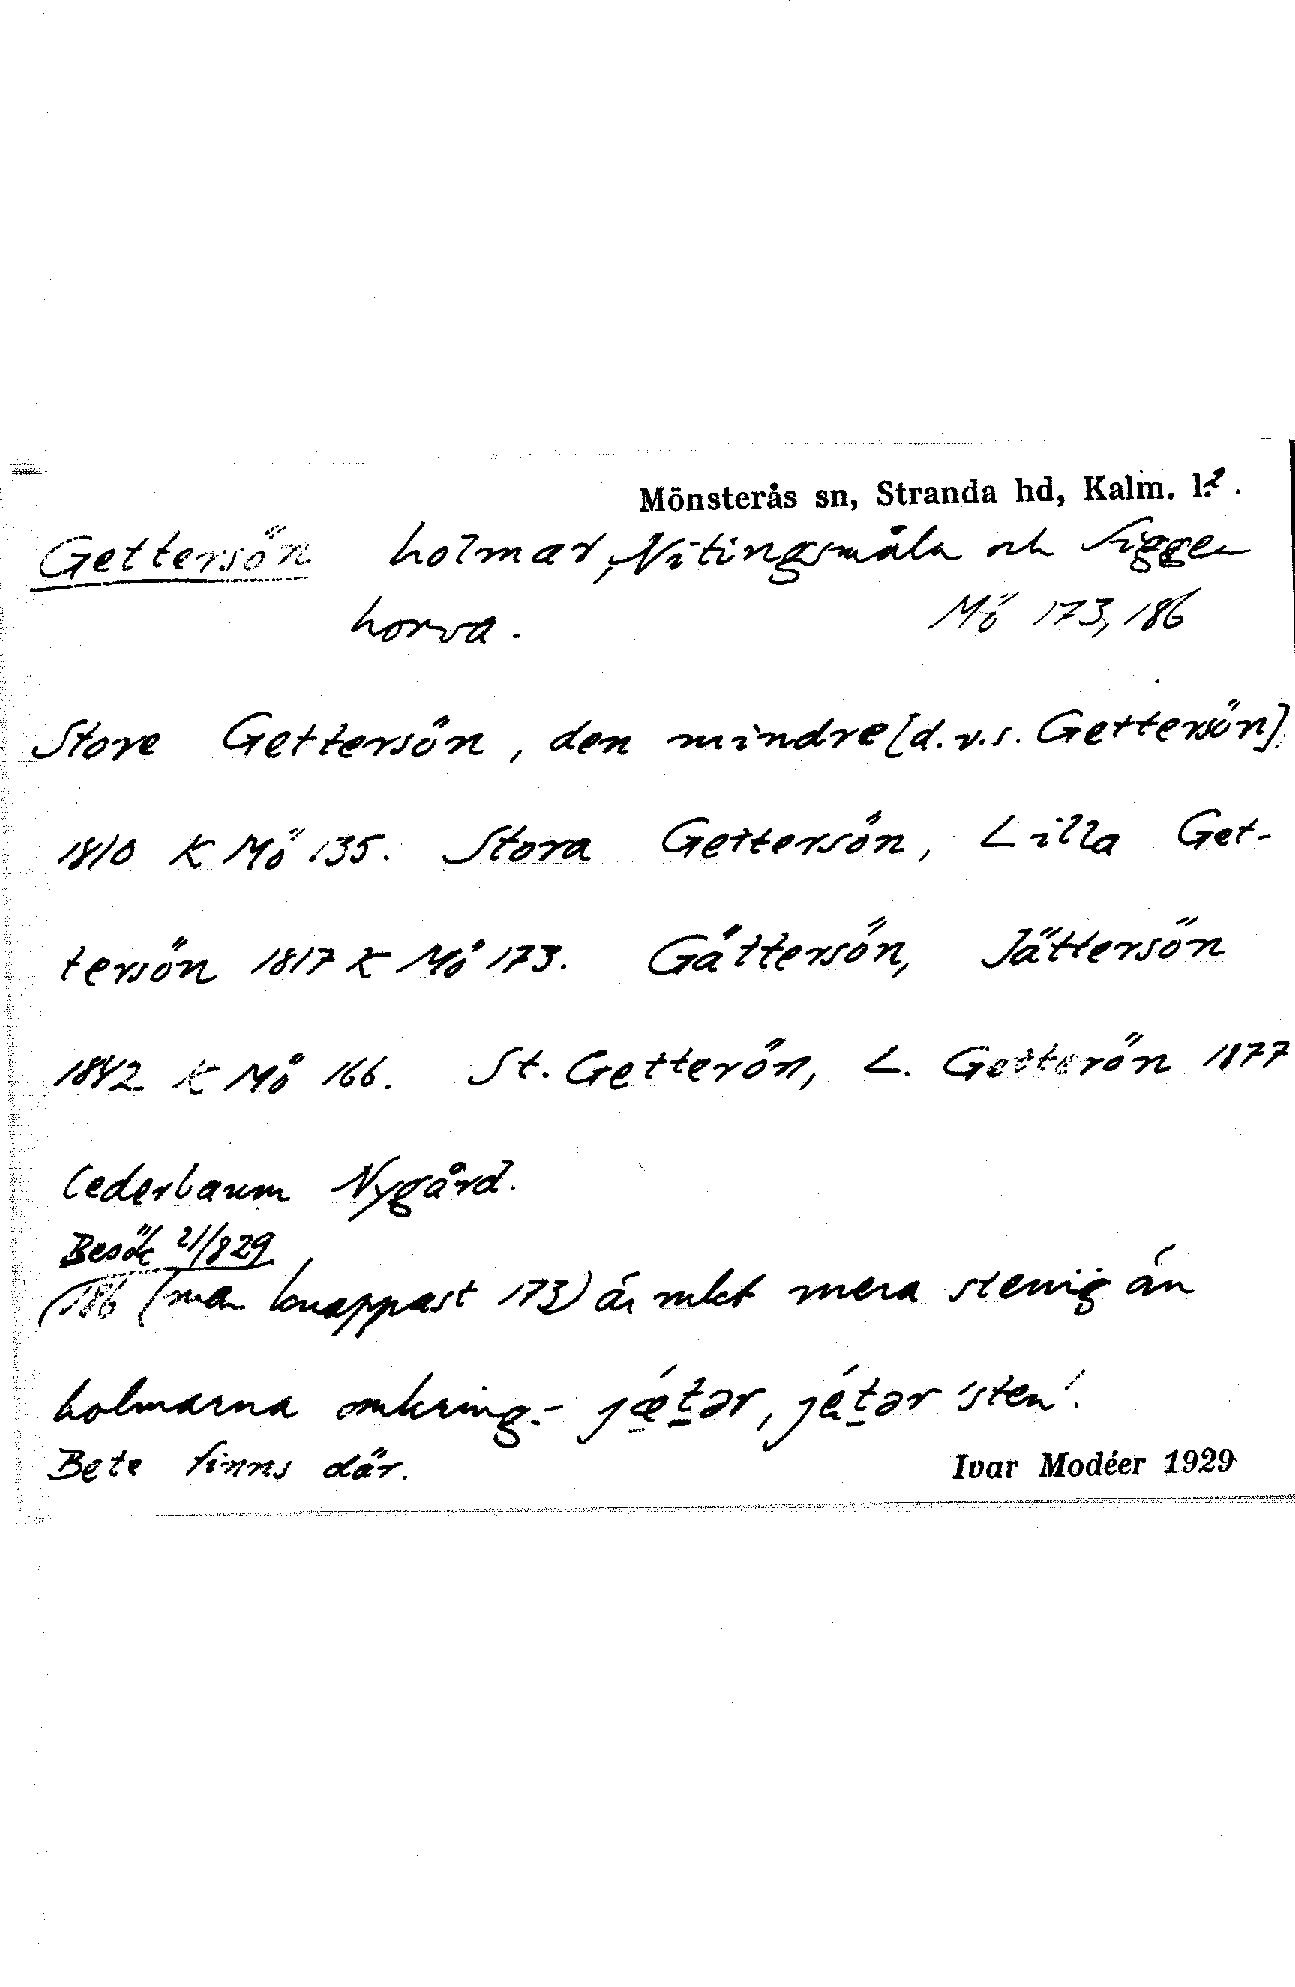 Mönsterås sn, Stranda hd, Kalm. l. 2.
Gettersön holmar, Nitingsmåla och Sigge-
horva.
Mö 173, 186
Store Gettersön, den mindre [d.v.s. Gettersön]
1810 K Mö 135. Stora Gettersön, Lilla Get-
tersön 1817 K Mö 173. Gättersön, Jättersön
1842 K Mö 166. St. Getterön, L. Getterön 1877
Cederbaum Nygård.
Besök 21/8 29
186 (men knappast 173) är mkt mera stenig än
holmarna omkring. - jǽt̲ər, jét̲ər 'sten'.
Bete finns där.
Ivar Modéer 1929